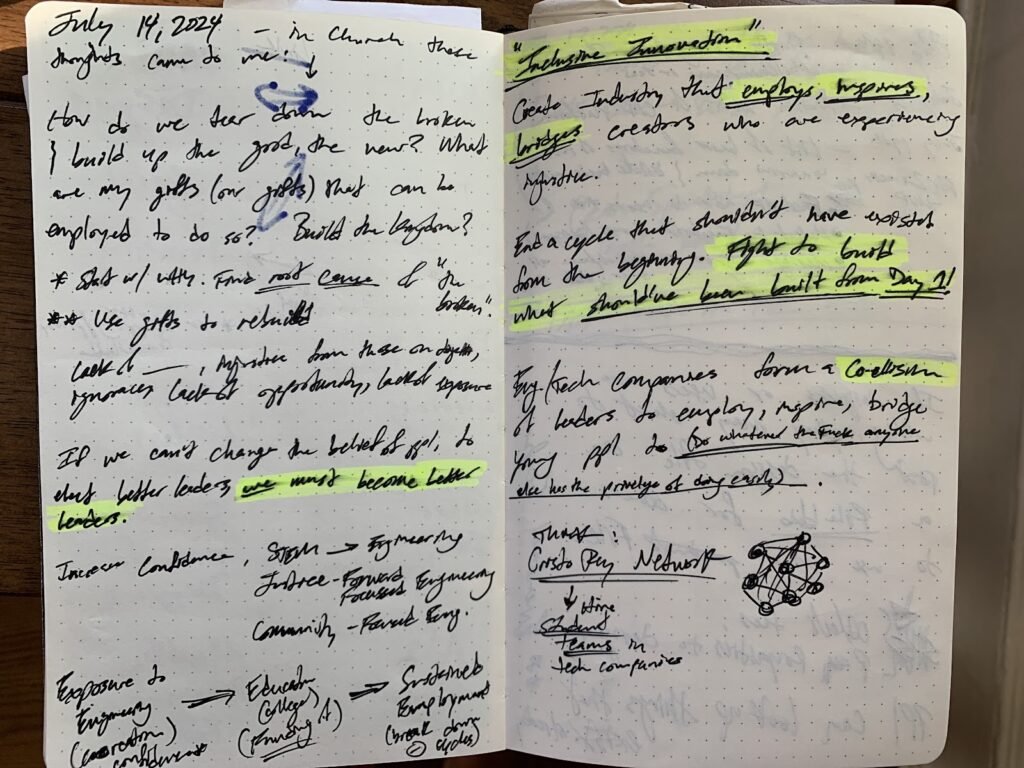 July 14, 2024 – in Church these
thoughts came to me:
How do we tear down the broken
& build up the good, the new? What
are my gifts (our gifts) that can be
employed to do so? Build the Kingdom?
* Start w/ why. Find root cause of "the
broken."
** Use gifts to rebuild
Lack of ___, injustice from those on
ignorance, lack of opportunity, lack of exposure
If we can't change the belief of ppl, to
elect better leaders, we must become better
leaders.
Increase Confidence, STEM → Engineering
Justice-Forward
Focused Engineering
Community-Forward Eng.
Exposure to
Engineering
(co-creation)
confidence*
→ Education
(college)
(Funding it)
→ Sustained
Employment
(break down
cycles)
"Inclusive Innovation"
Create Industry that employs, inspires,
bridges creators who are experiencing
injustice.
End a cycle that shouldn't have existed
from the beginning. Fight to build
what should've been built from Day 1!
Eng./Tech companies form a Co-ellision
of leaders to employ, inspire, bridge
young ppl to (Do whatever the Fuck anyone
else has the privilege of doing easily).
Think:
Cristo Rey Network
↓ hire
student
teams in
tech companies